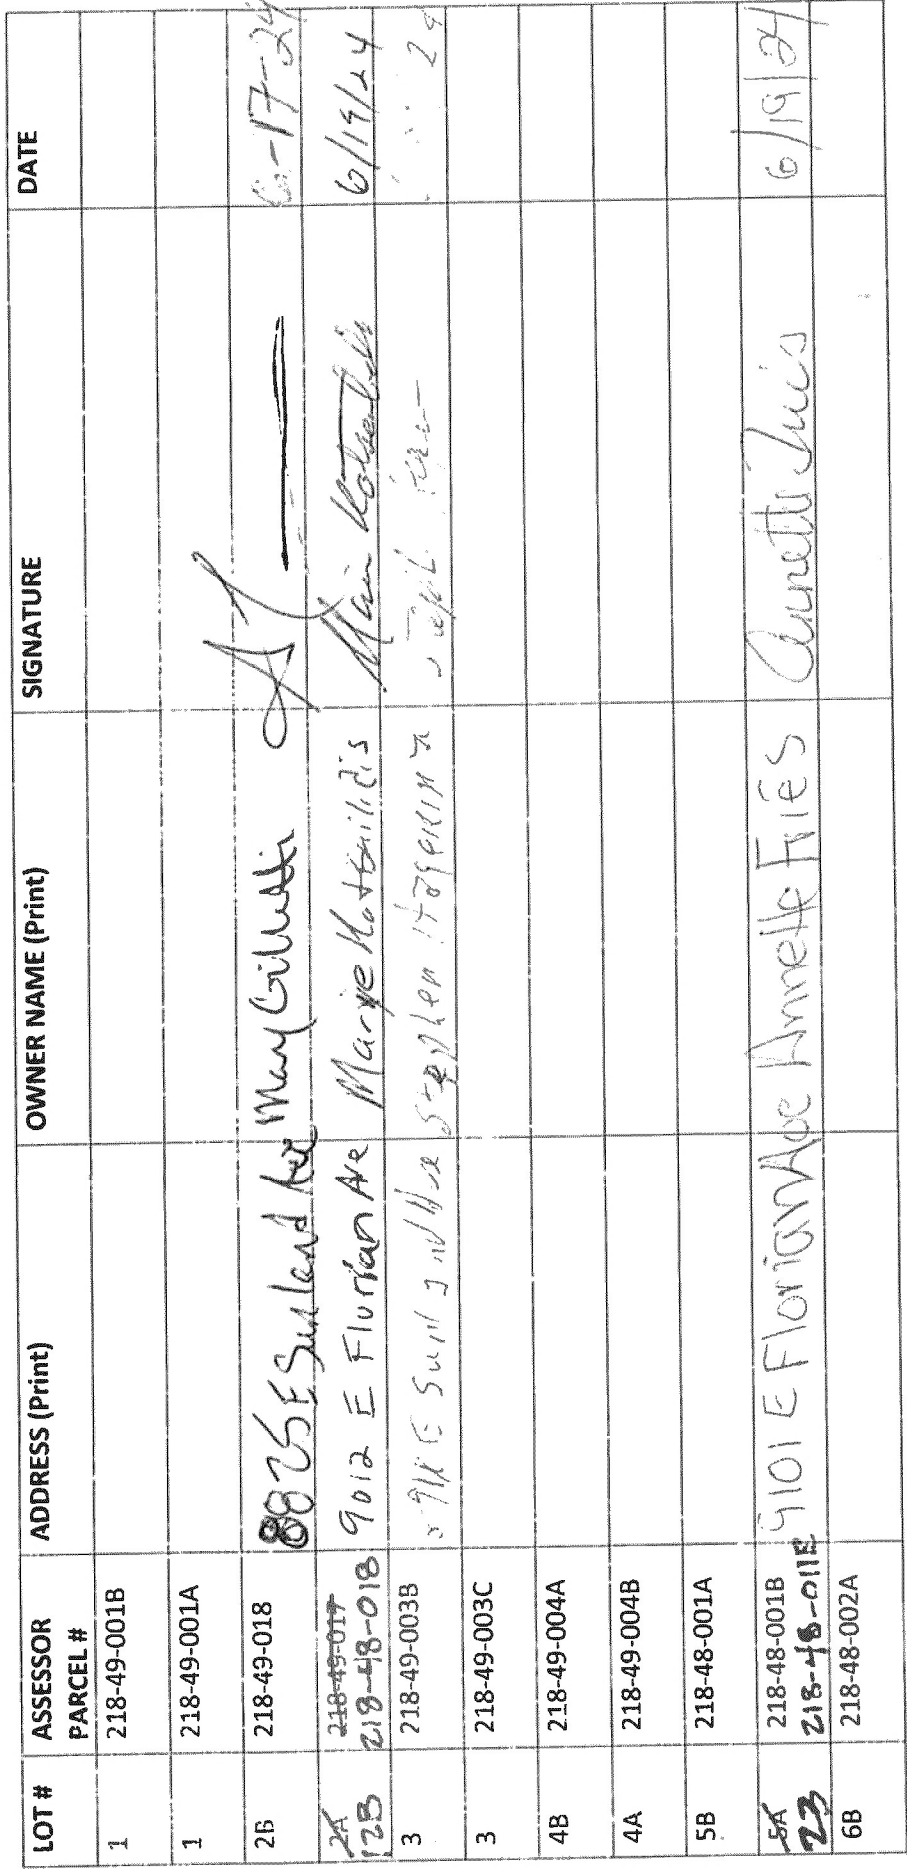 LOT # ASSESSOR PARCEL # ADDRESS (Print) OWNER NAME (Print) SIGNATURE DATE
1 218-49-001B
1 218-49-001A
2B 218-49-018 8825 E Sunland Ave Mary Gillutti 6-17-24
2A 218-49-017
12B 218-48-018 9012 E Florian Ave Marye Kotsuilidis 6/19/24
3 218-49-003B E Sunland Ave Stephen 24
3 218-49-003C
4B 218-49-004A
4A 218-49-004B
5B 218-48-001A
5A 218-48-001B 9101 E Florian Ave Annette Fries Annette Fries 6/19/24
23 218-48-011E
6B 218-48-002A